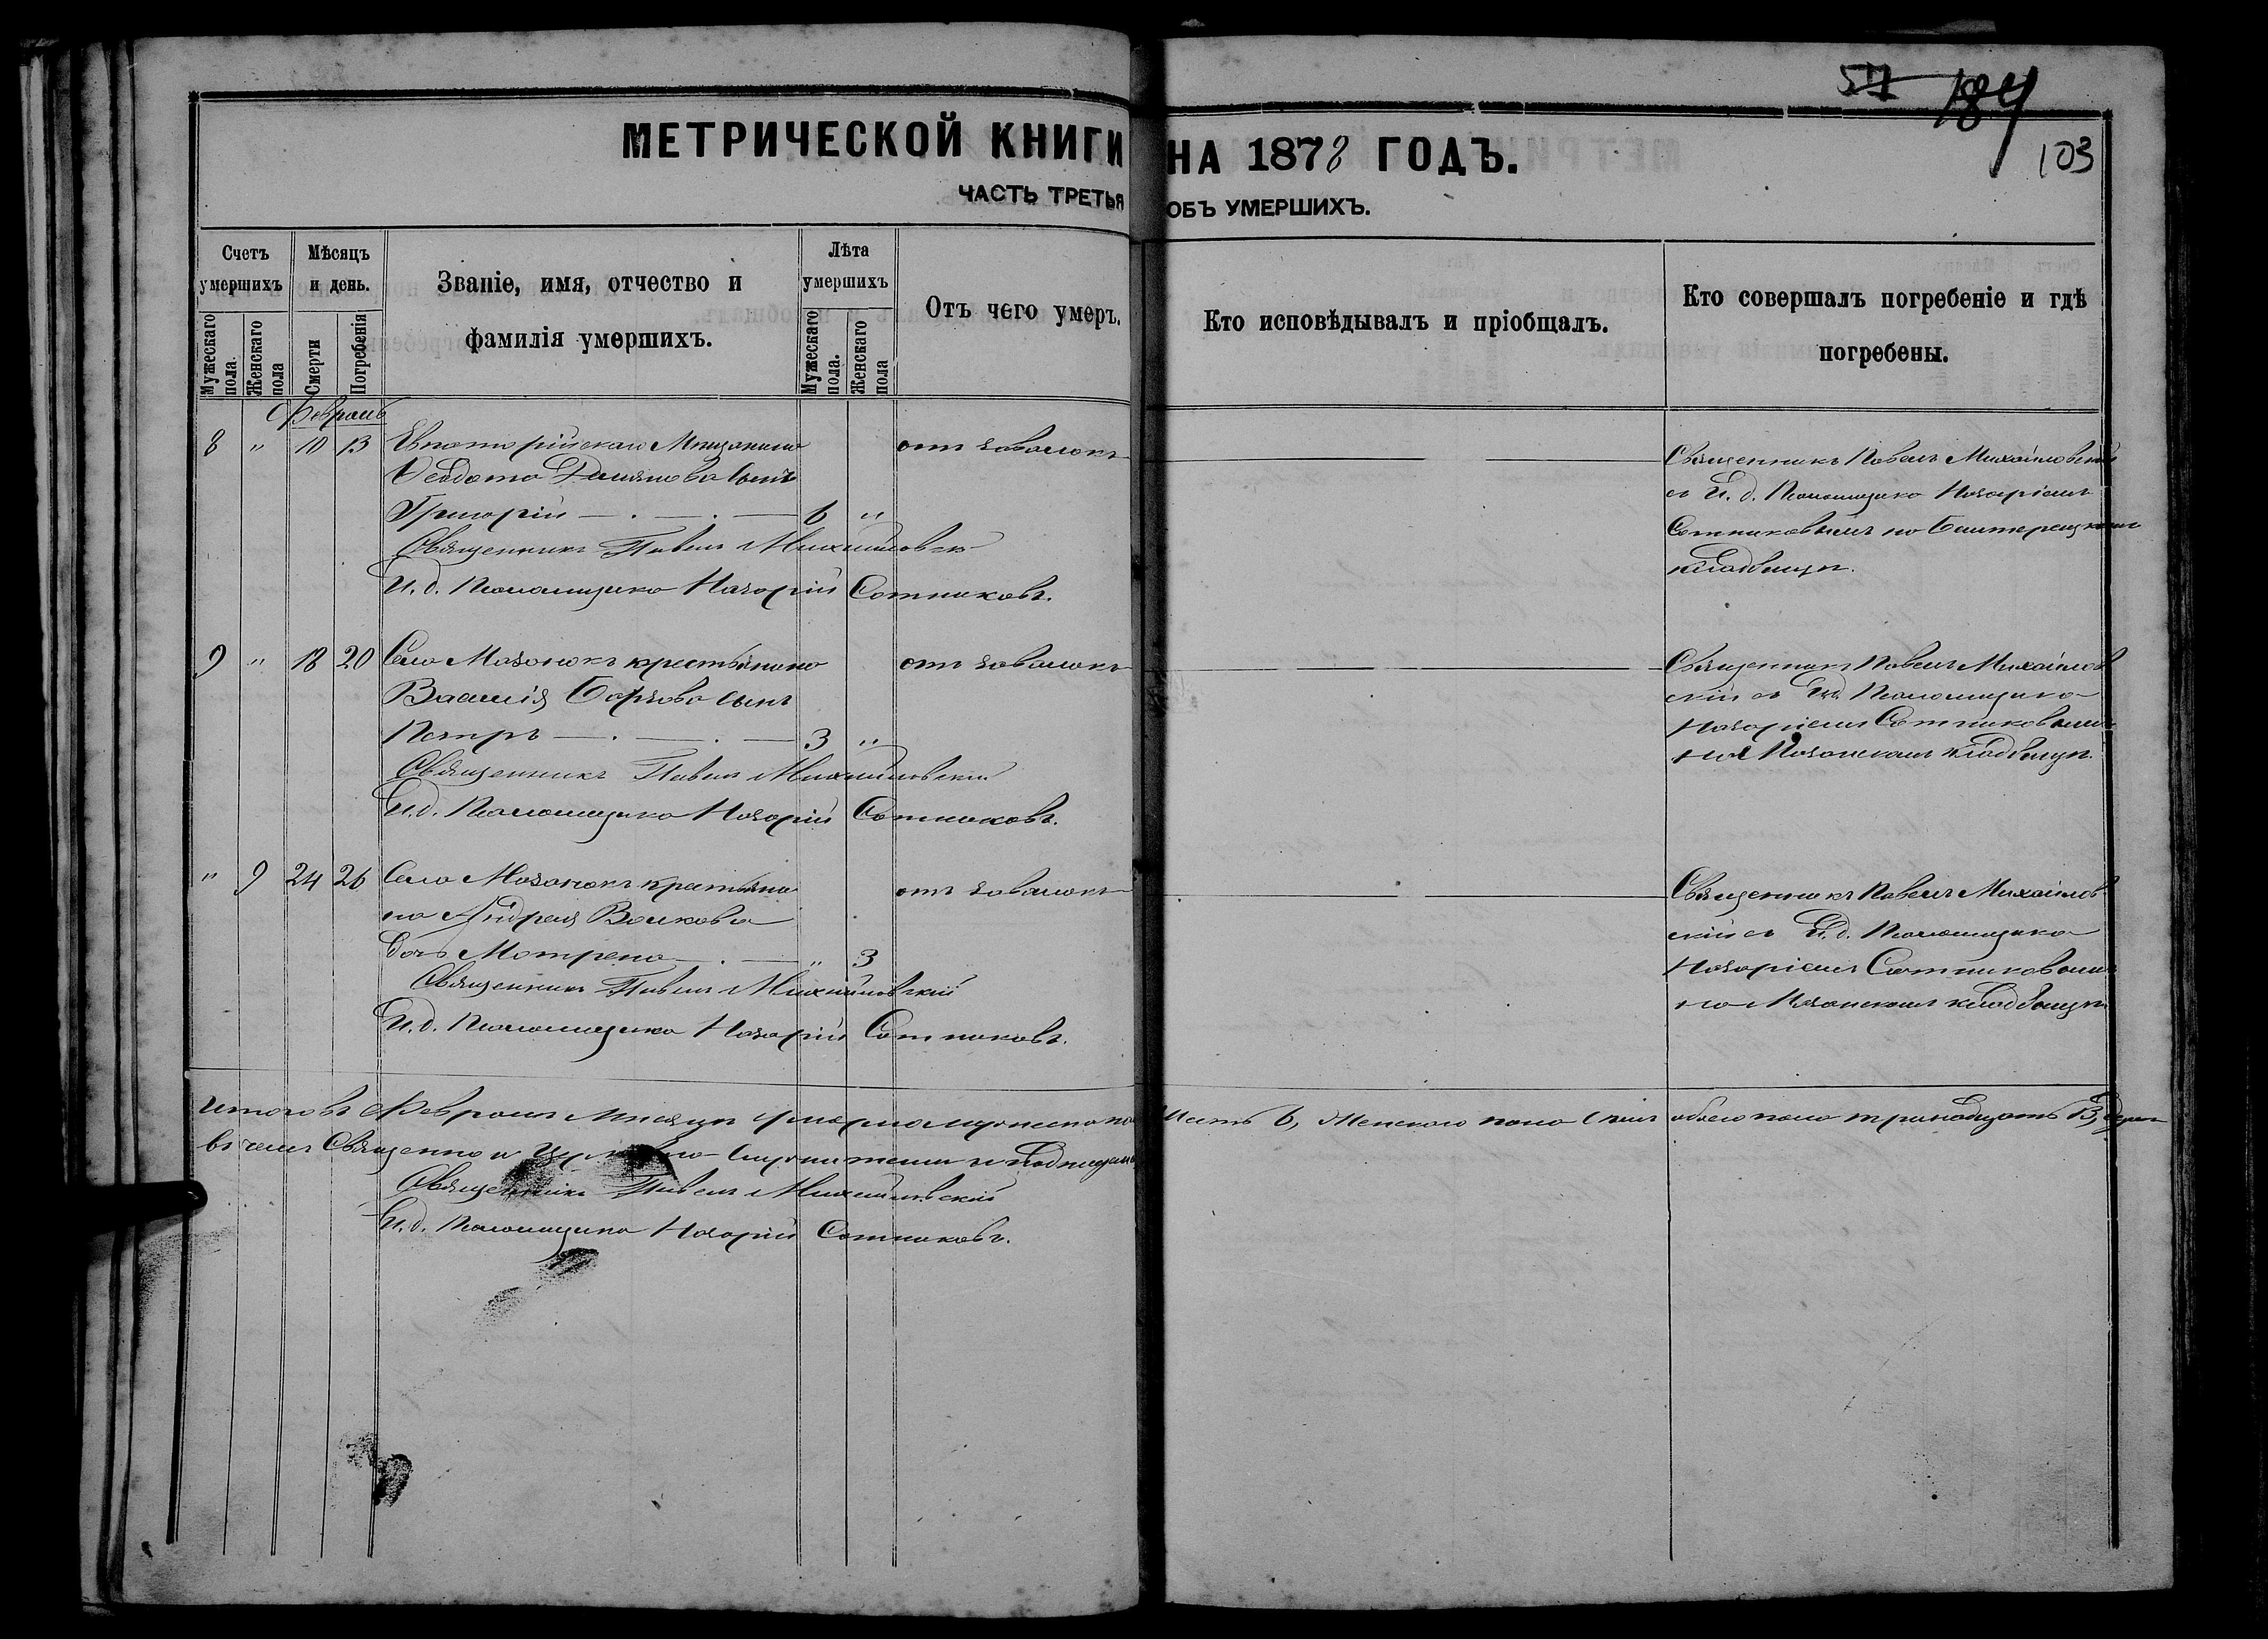 57 184
103
МЕТРИЧЕСКОЙ КНИГИ НА 1878 ГОДЪ.
ЧАСТЬ ТРЕТЬЯ ОБЪ УМЕРШИХЪ.
Счетъ умершихъ
Мужескаго пола.
Женскаго пола
Мѣсяцъ и день.
Смерти
Погребенія
Званіе, имя, отчество и
фамилія умершихъ.
Лѣта умершихъ
Мужескаго пола.
Женскаго пола
Отъ чего умеръ.
Кто исповѣдывалъ и пріобщалъ.
Кто совершалъ погребеніе и гдѣ
погребены.
Февраль
8 " 10 13 Евпаторійскаго Мѣщанина отъ завалокъ
Ѳеодота Демянова сынъ
Григорій 6 "
Священникъ Павелъ Михайловскій
И. д. Псаломщика Назарій Сотниковъ.
Священникъ Павелъ Михайловскій
съ И. д. Псаломщика Назаріемъ
Сотниковымъ на
кладбищѣ.
9 " 18 20 Села Мазанокъ крестьянина отъ завалокъ
Василія Борзова сынъ
Петръ 3 "
Священникъ Павелъ Михайловскій
И. д. Псаломщика Назарій Сотниковъ.
Священникъ Павелъ Михайлов
скій съ И.д. Псаломщика
Назаріемъ Сотниковымъ
на Мазанскомъ кладбищѣ.
" 9 24 26 Села Мазанокъ крестьяни отъ завалокъ
на Андрея Волкова
дочь Матрена " 3
Священникъ Павелъ Михайловскій
И. д. Псаломщика Назарій Сотниковъ.
Священникъ Павелъ Михайлов
скій съ И. д. Псаломщика
Назаріемъ Сотниковымъ
на Мазанскомъ кладбищѣ
Итого въ Февралѣ Мѣсяцѣ умерло мужеска по шесть 6, Женскаго пола семь обоего пола тринадцать 13,
въ чемъ Священно и Церковно служители и подписуемъ
Священникъ Павелъ Михайловскій
И. д. Псаломщика Назарій Сотниковъ.